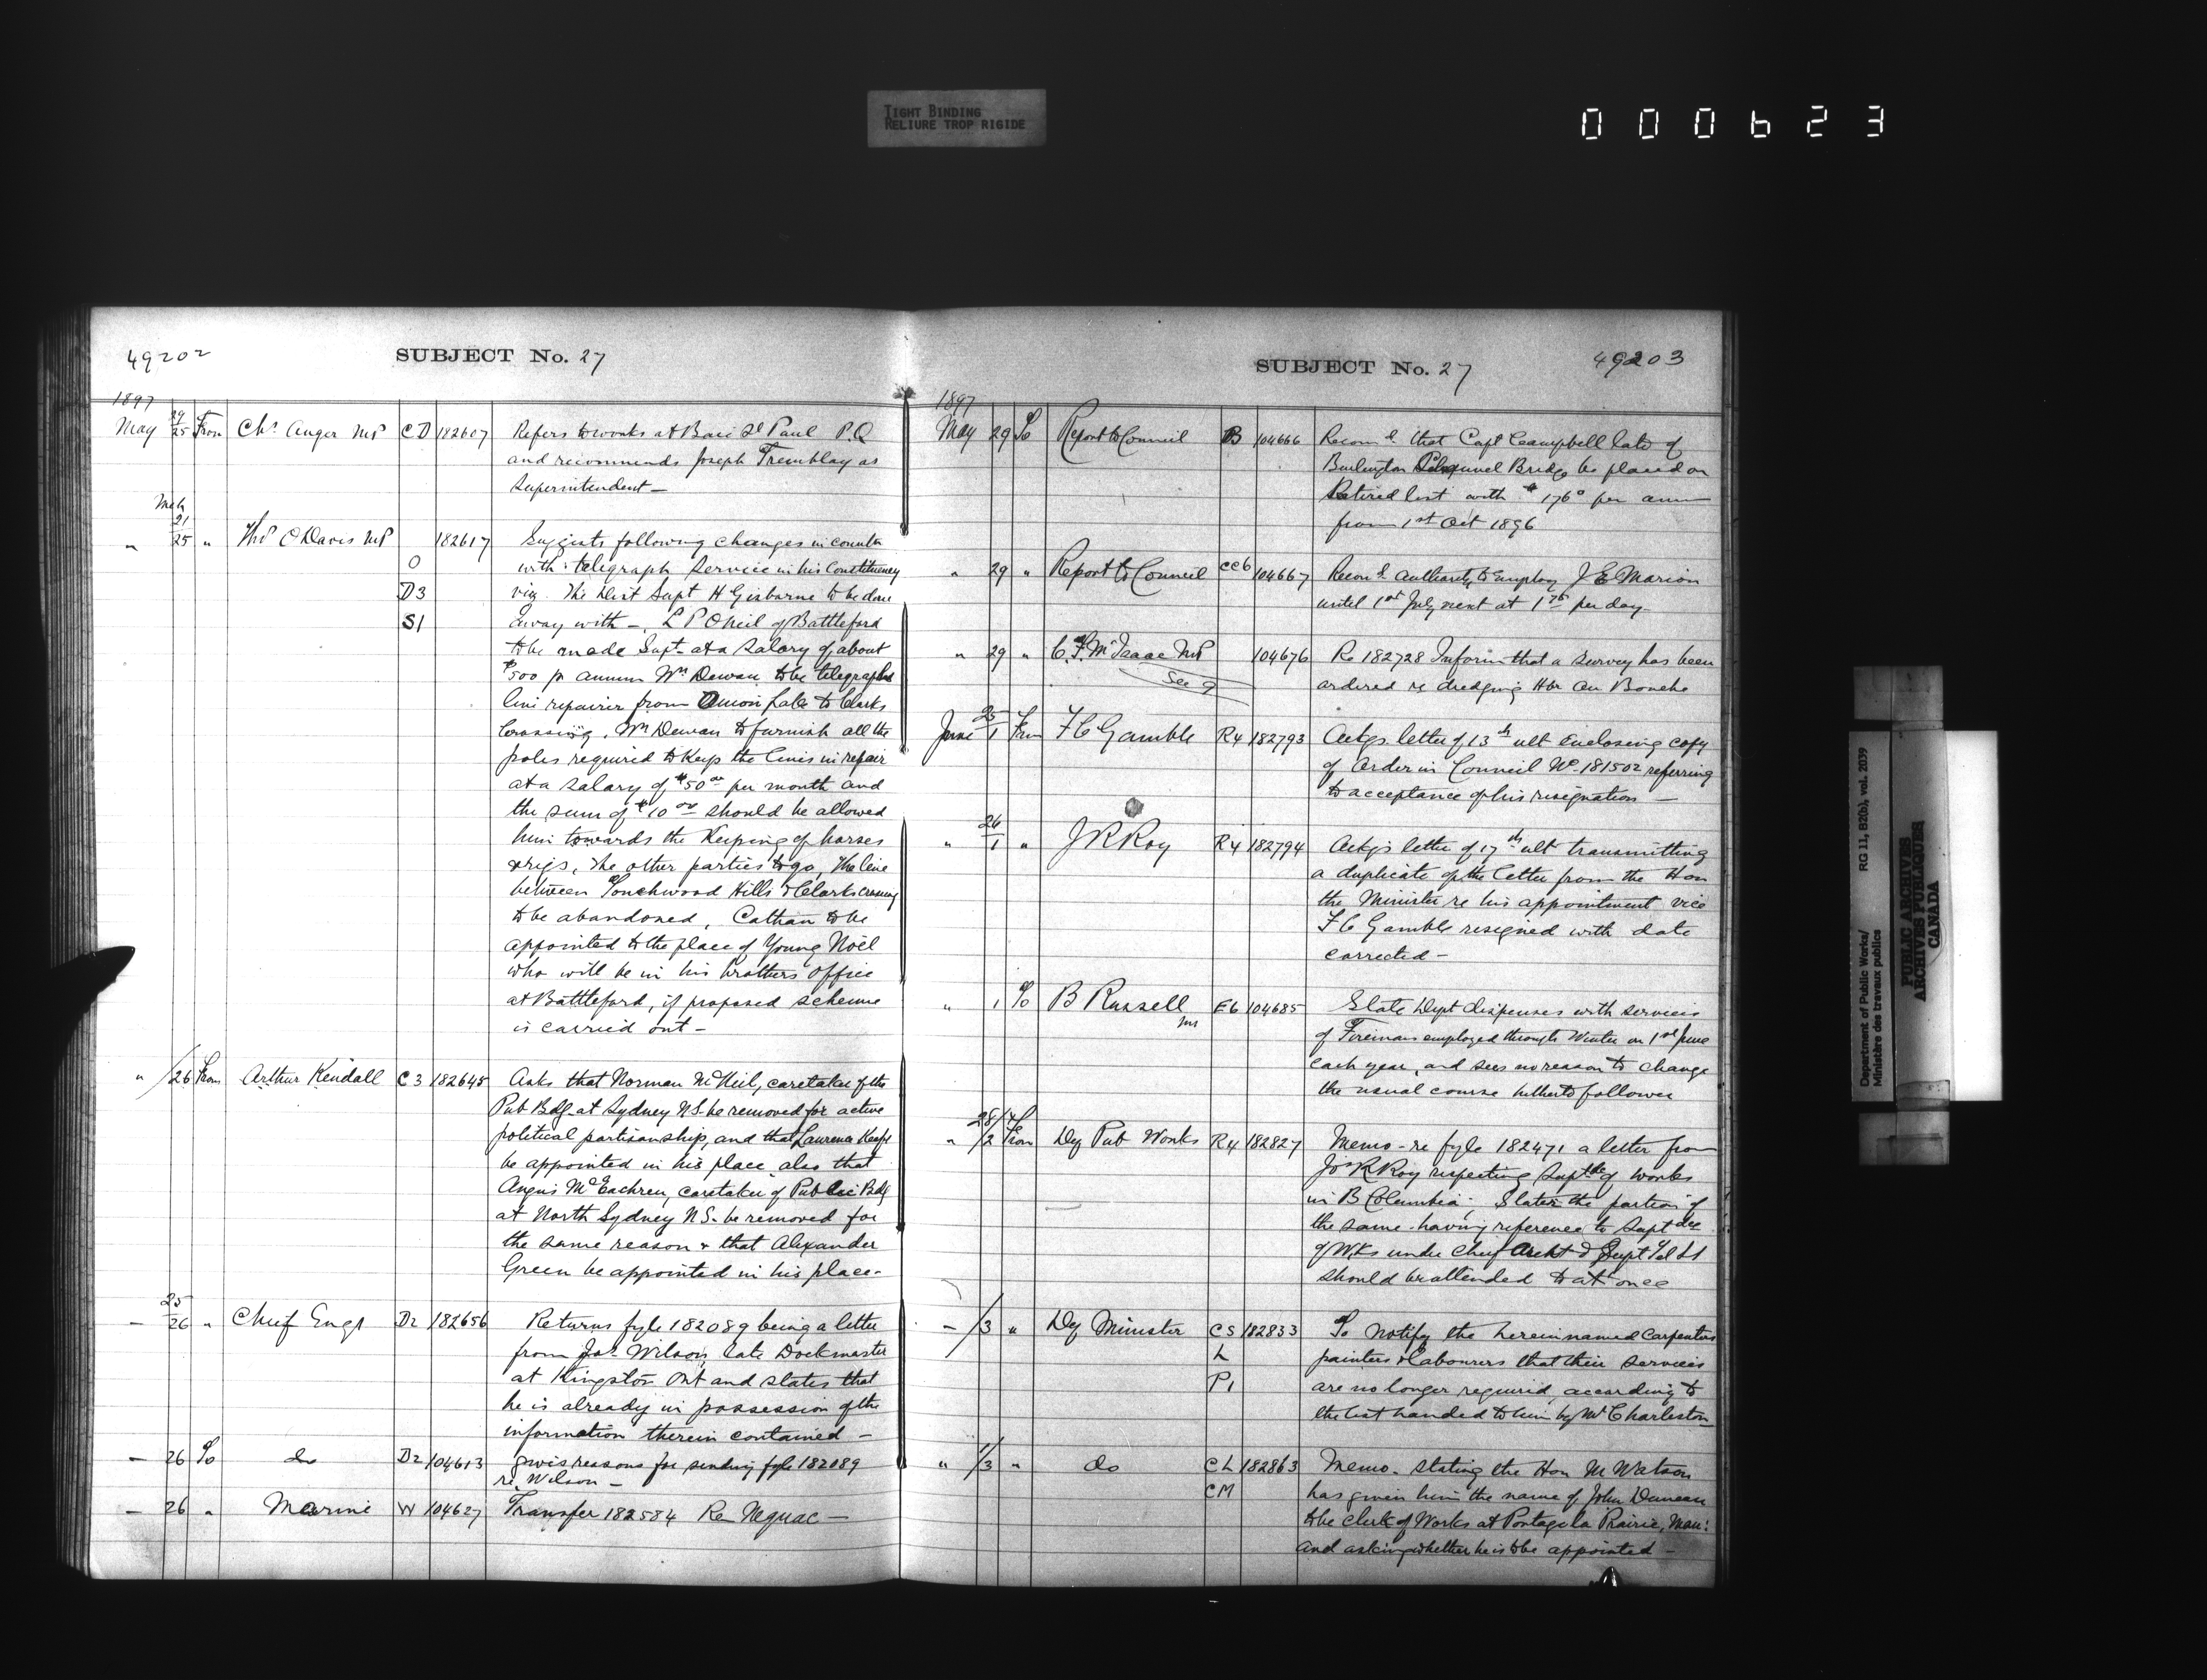 TIGHT BINDING
RELIURE TROP RIGIDE
000623
49202
SUBJECT No. 27
1897
May 24/25 From Chs Anger MP CD 182607 Refers to works at Baie St Paul P.Q
and recommends Joseph Tremblay as
Superintendent —
Mch
21
" 25 " Thos O Davis MP 182617 Suggests following changes in connctn
O with telegraph service in his Constituency
D3 viz. The Dist Supt H Gisborne to be done
S1 away with —. L P O Neil of Battleford
to be made Supt at a salary of about
$500 pr annum Wm Dewan to be telegraph
line repairer from Onion Lake to Clarks
Crossing. Wm Dewan to furnish all the
poles required to keep the lines in repair
at a salary of $50 00 per month and
the sum of $10 00 should be allowed
him towards the Keeping of horses
& rigs, the other parties to go, The line
between Touchwood Hills & Clarks crossing
to be abandoned, Cathan to be
appointed to the place of Young Noël
who will be in his brothers office
at Battleford, if proposed scheme
is carried out —
" /26 From Arthur Kendall C3 182645 Asks that Norman McNeil, caretaker of the
Pub Bdg at Sydney N.S. be removed for active
political partisanship, and that Laurence Keefe
be appointed in his place also that
Angus McEachren, caretaker of Public Bdg
at North Sydney N.S. be removed for
the same reason & that Alexander
Green be appointed in his place.
25
— 26 " Chief Engr D2 182656 Returns fyle 182089 being a letter
from Jas Wilson, late Dockmaster
at Kingston Ont and states that
he is already in possession of the
information therein contained —
— 26 To do D2 104613 gives reasons for sending fyle 182089
re Wilson —
— 26 " Marine W 104627 Transfer 182584 Re Neguac —
SUBJECT No. 27
49203
1897
May 29 To Report to Council B 104666 Recomd that Capt Campbell late of
Burlington Channel Bridge be placed on
Retired list with $176 0 per ann
from 1st Oct 1896
" 29 " Report to Council CC6 104667 Recomd authority to employ J E Marion
until 1st July next at 1 75 per day
" 29 " C. F. McIsaac MP 104676 Re 182728 Inform that a survey has been
See 9 ordered re dredging Hbr au Bouche
25
June 1 From F C Gamble R4 182793 Ackgs letter of 13th ult Enclosing copy
of Order in Council No 181502 referring
to acceptance of his resignation —
26
" 1 " J R Roy R4 182794 Ackgs letter of 17th ult transmitting
a duplicate of the letter from the Hon
the Minister re his appointment vice
F C Gamble resigned with date
corrected —
" 1 To B Russell MP E6 104685 State Dept dispenses with services
of Fireman employed through Winter on 1st June
each year, and sees no reason to change
the usual course hitherto followed
28/
" /2 From Dy Pub Works R4 182827 Memo - re fyle 182471 a letter from
Jos R Roy respecting Suptdce of works
in B Columbia; States the portion of
the same having reference to Suptdce
of Wks under Chief Archt & Supt Tel Ls
should be attended to at once
— /3 " Dy Minister CS 182833 To notify the herein named Carpenters
L painters & labourers that their services
P1 are no longer required according to
the list handed to him by Mr Charleston
" 1/3 " do CL 182863 Memo. Stating the Hon Mr Watson
CM has given him the name of John Duncan
to be Clerk of Works at Portage la Prairie, Man:
and asking whether he is to be appointed —
Department of Public Works/ RG 11, B2(b), vol. 2039
Ministère des travaux publics
PUBLIC ARCHIVES
ARCHIVES PUBLIQUES
CANADA